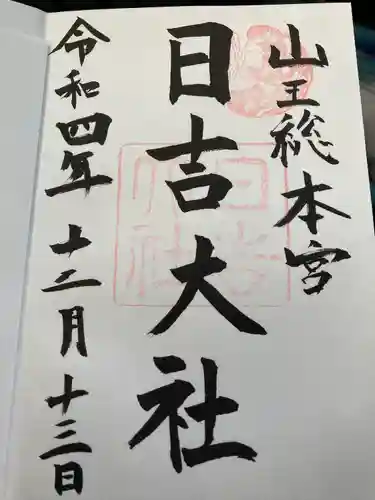 山王総本宮
日吉大社
令和四年十二月十三日
日吉大社